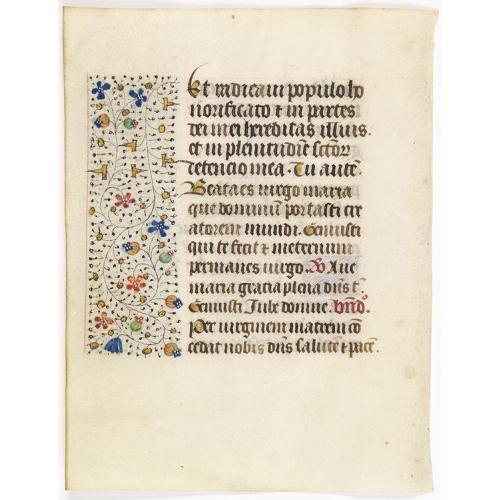 Et radicaui populo ho
norificato ⁊ in partes
dei mei hereditas illius.
et in plenitudīe sctōꝝ
detencio mea. Tu autē.
Beata es uirgo maria
que dominum portasti cre
atorem mundi. Genuisti
qui te fecit ⁊ meternum
permanes uirgo. ℣ Aue
maria gracia plena dn̄s t̄.
Genuisti Iube domne. bn̄d̄o.
Per uirginem matrem cō
cedat nobis dn̄s salutē ⁊ pacē.